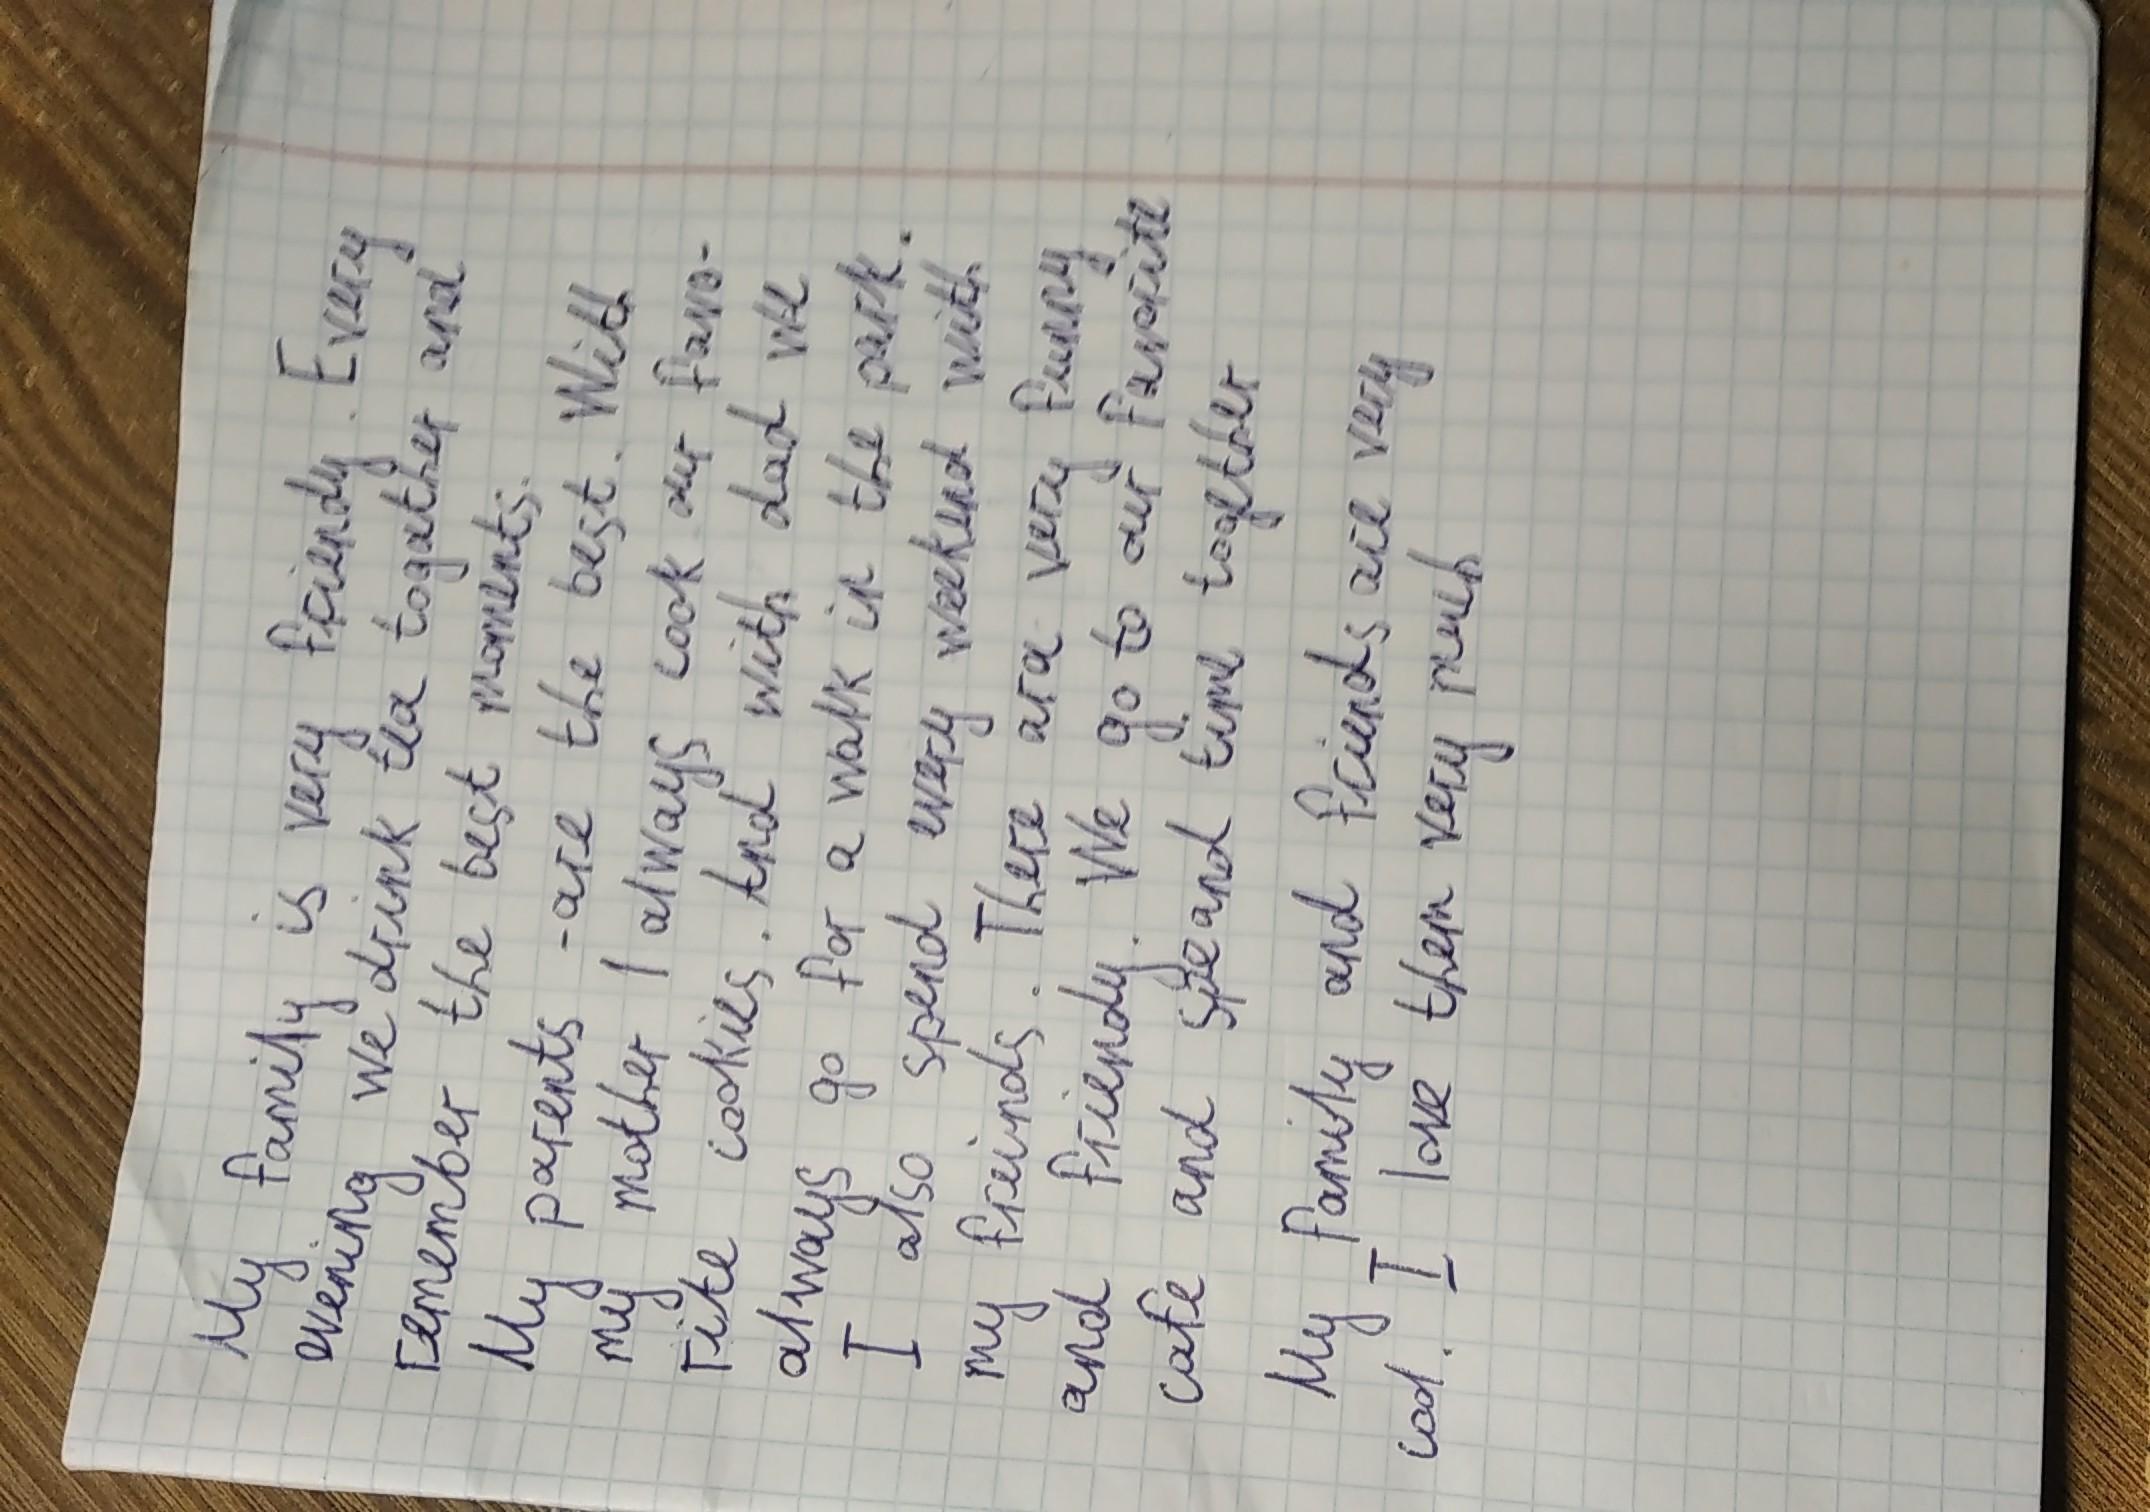 My family is very friendy. Every
evening we drink tea togather and
remember the best moments.
My parents -are the best. With
my mother I always cook our favo-
rite cookies. And with dad we
always go for a walk in the park.
I also spend every weekend with
my freinds. There ara very funny
and friendy. We go to our favorite
cafe and speand time together
My family and friends are very
cool. I love them very much